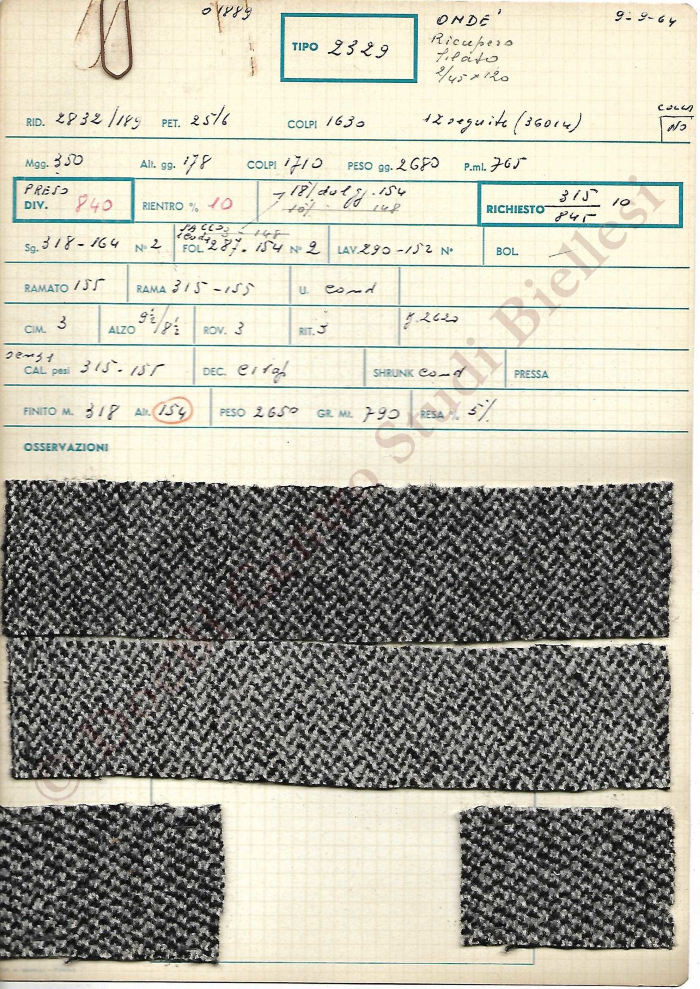 01889
ONDE' 9-9-64
TIPO 2329
Ricupero
filato
2/45 × 120
RID. 2832/189 PET. 25/6 COLPI 1630 12 seguite (36014)
NO
Mgg. 350 Alt. gg. 178 COLPI 1710 PESO gg. 2680 P.ml. 765
PRESO
DIV. 840 RIENTRO % 10 18/dal gg. 154
10% 148
RICHIESTO 315/845 10
Sg. 318-164 N° 2 FOL. 287-154 N° 2 LAV. 290-152 N° BOL. —
RAMATO 155 RAMA 315-155 U. cond
CIM. 3 ALZO 9½/8½ ROV. 3 RIT. 3 g. 2620
CAL. pesi 315-155 DEC. SHRUNK cond PRESSA
FINITO M. 318 Alt. 154 PESO 2650 GR. Mt. 790 RESA % 5%
OSSERVAZIONI
© Centro Studi Biellesi